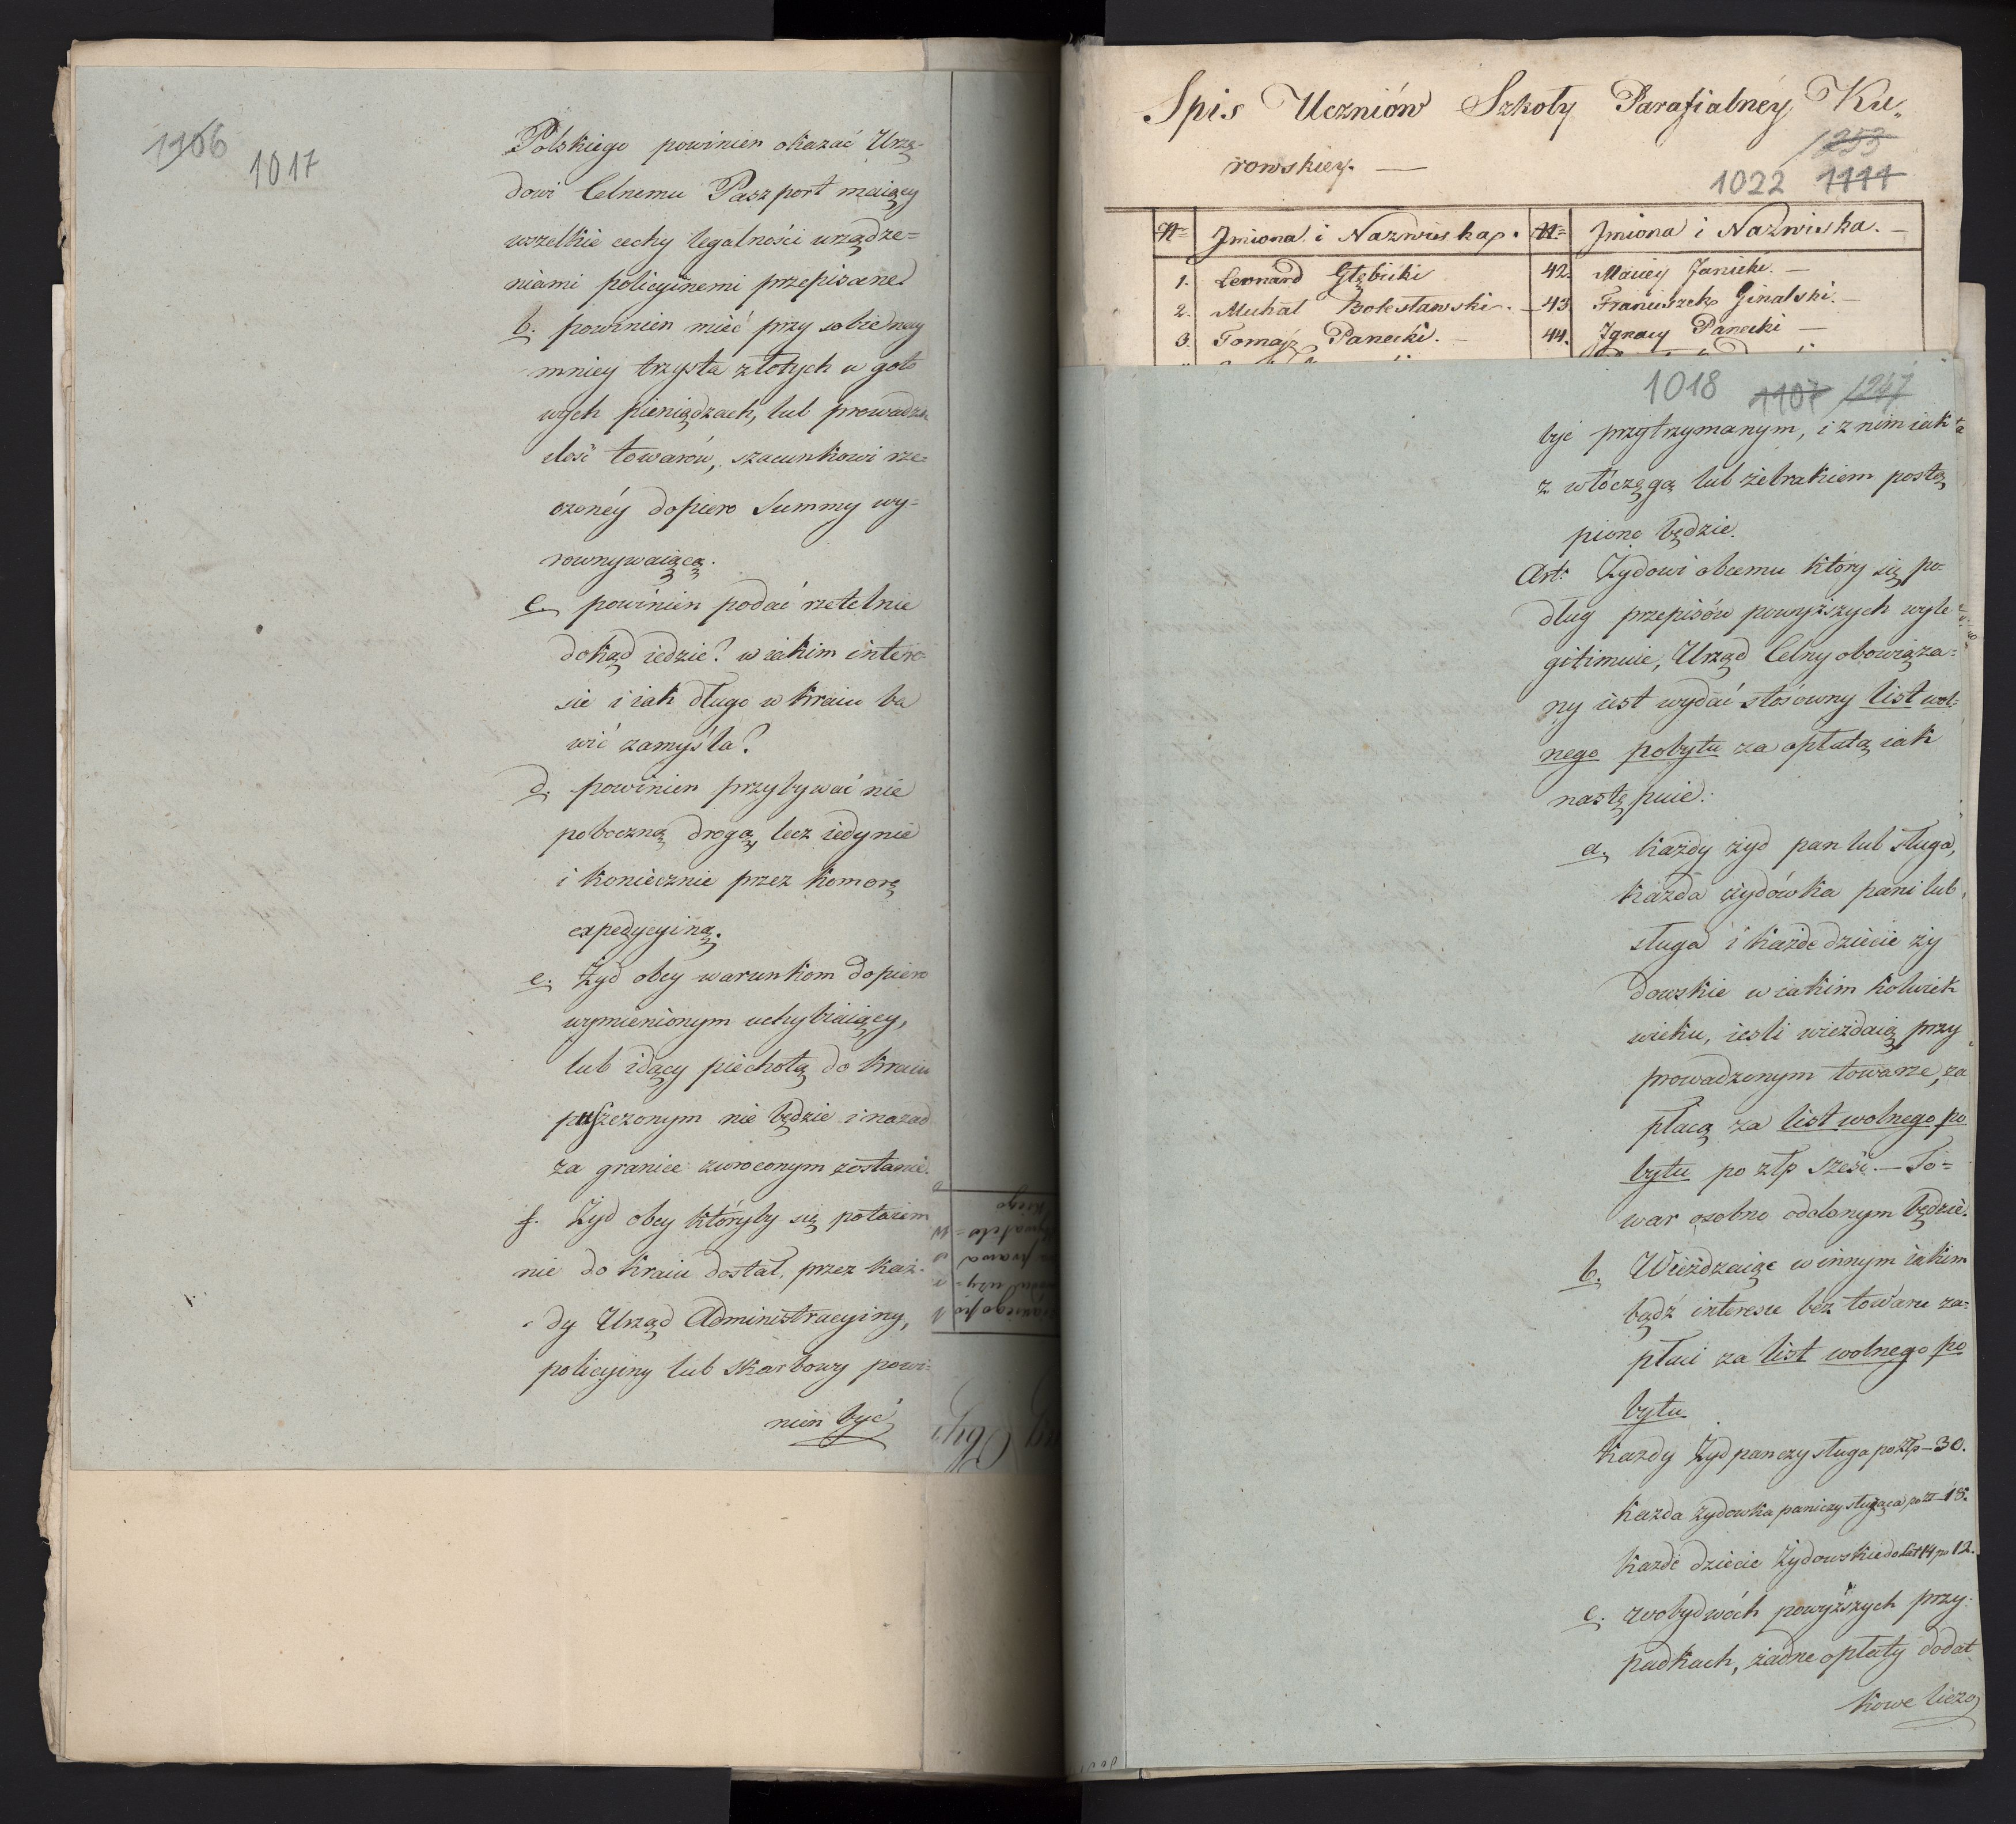 1106 1017
Polskiego powinien okazać Urzę-
dowi Celnemu Paszport maiący
wszelkie cechy legalności urządze=
niami policyinemi przepisane
b. powinien mieć przy sobie nay
mniey trzysta złotych w goto
wych pieniądzach, lub prowadzić
ilość towarów, szacunkowi rze=
czonéy dopiero Summy wy=
rownywaiącą.
c. powinien podać rzetelnie
dokąd iedzie? w iakim intere-
sie i iak długo w kraiu ba
wić zamyśla?
d. powinien przybywać nie
poboczną drogą, lecz iedynie
i koniecznie przez komorę
expedycyiną.
e. Żyd obcy warunkom dopiero
wymienionym uchybiaiący,
lub idący piechotą do kraiu
puszczonym nie będzie i nazad
za granice zwroconym zostanie.
f. Żyd obcy któryby się potaiem
nie do kraiu dostał, przez każ-
dy Urząd Administracyiny,
policyiny lub skarbowy powi=
nien być
Spis Uczniów Szkoły Parafialnéy Ku„
rowskiey. —
1253
1022 1111
N= Jmiona i Nazwiska. N= Jmiona i Nazwiska. —
1. Leonard Głębicki 42. Maciey Janicki. —
2. Michał Bolesławski. — 43. Franciszek Ginalski. —
3. Tomasz Panecki. — 44. Jgnacy Panecki —
1018 1107 1247
być przytrzymanym, i z nim iak
z włóczęgą lub żebrakiem postą
piono będzie.
Art: Żydowi obcemu który się po=
dług przepisów powyższych wyle
gitimuie, Urząd Celny obowiąza=
ny iest wydać stósowny list wol=
nego pobytu za opłatą iak
nastę puie:
a. każdy żyd pan lub sługa,
każda żydówka pani lub
sługa i każde dziecie ży
dowskie w iakim kolwiek
wieku, iesli wieżdaią przy
prowadzonym towarze, za
płacą za list wolnego po
bytu po złp sześć. — To=
war osobno odclonym będzie.
b. Wieżdzaiąc w innym iakim
bądź interesie bez towaru za=
płaci za list wolnego po
bytu
każdy Żyd pan czy sługa po Złp — 30.
każda żydowka pani czy służąca po zł — 18.
każde dziecie Żydowskie do lat 14 po 12.
c. w obydwóch powyższych przy-
padkach, żadne opłaty dodat
kowe liczo